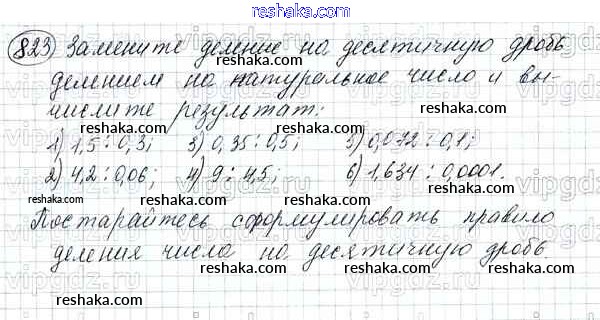 reshaka.com
823 Замените деление на десятичную дробь
делением на натуральное число и вы-
числите результат:
reshaka.com
1) 1,5 : 0,3; 3) 0,35 : 0,5; 5) 0,072 : 0,1;
reshaka.com reshaka.com reshaka.com
2) 4,2 : 0,06; 4) 9 : 4,5; 6) 1,634 : 0,0001.
reshaka.com reshaka.com reshaka.com
Постарайтесь сформулировать правило
reshaka.com reshaka.com
деления числа на десятичную дробь.
reshaka.com reshaka.com